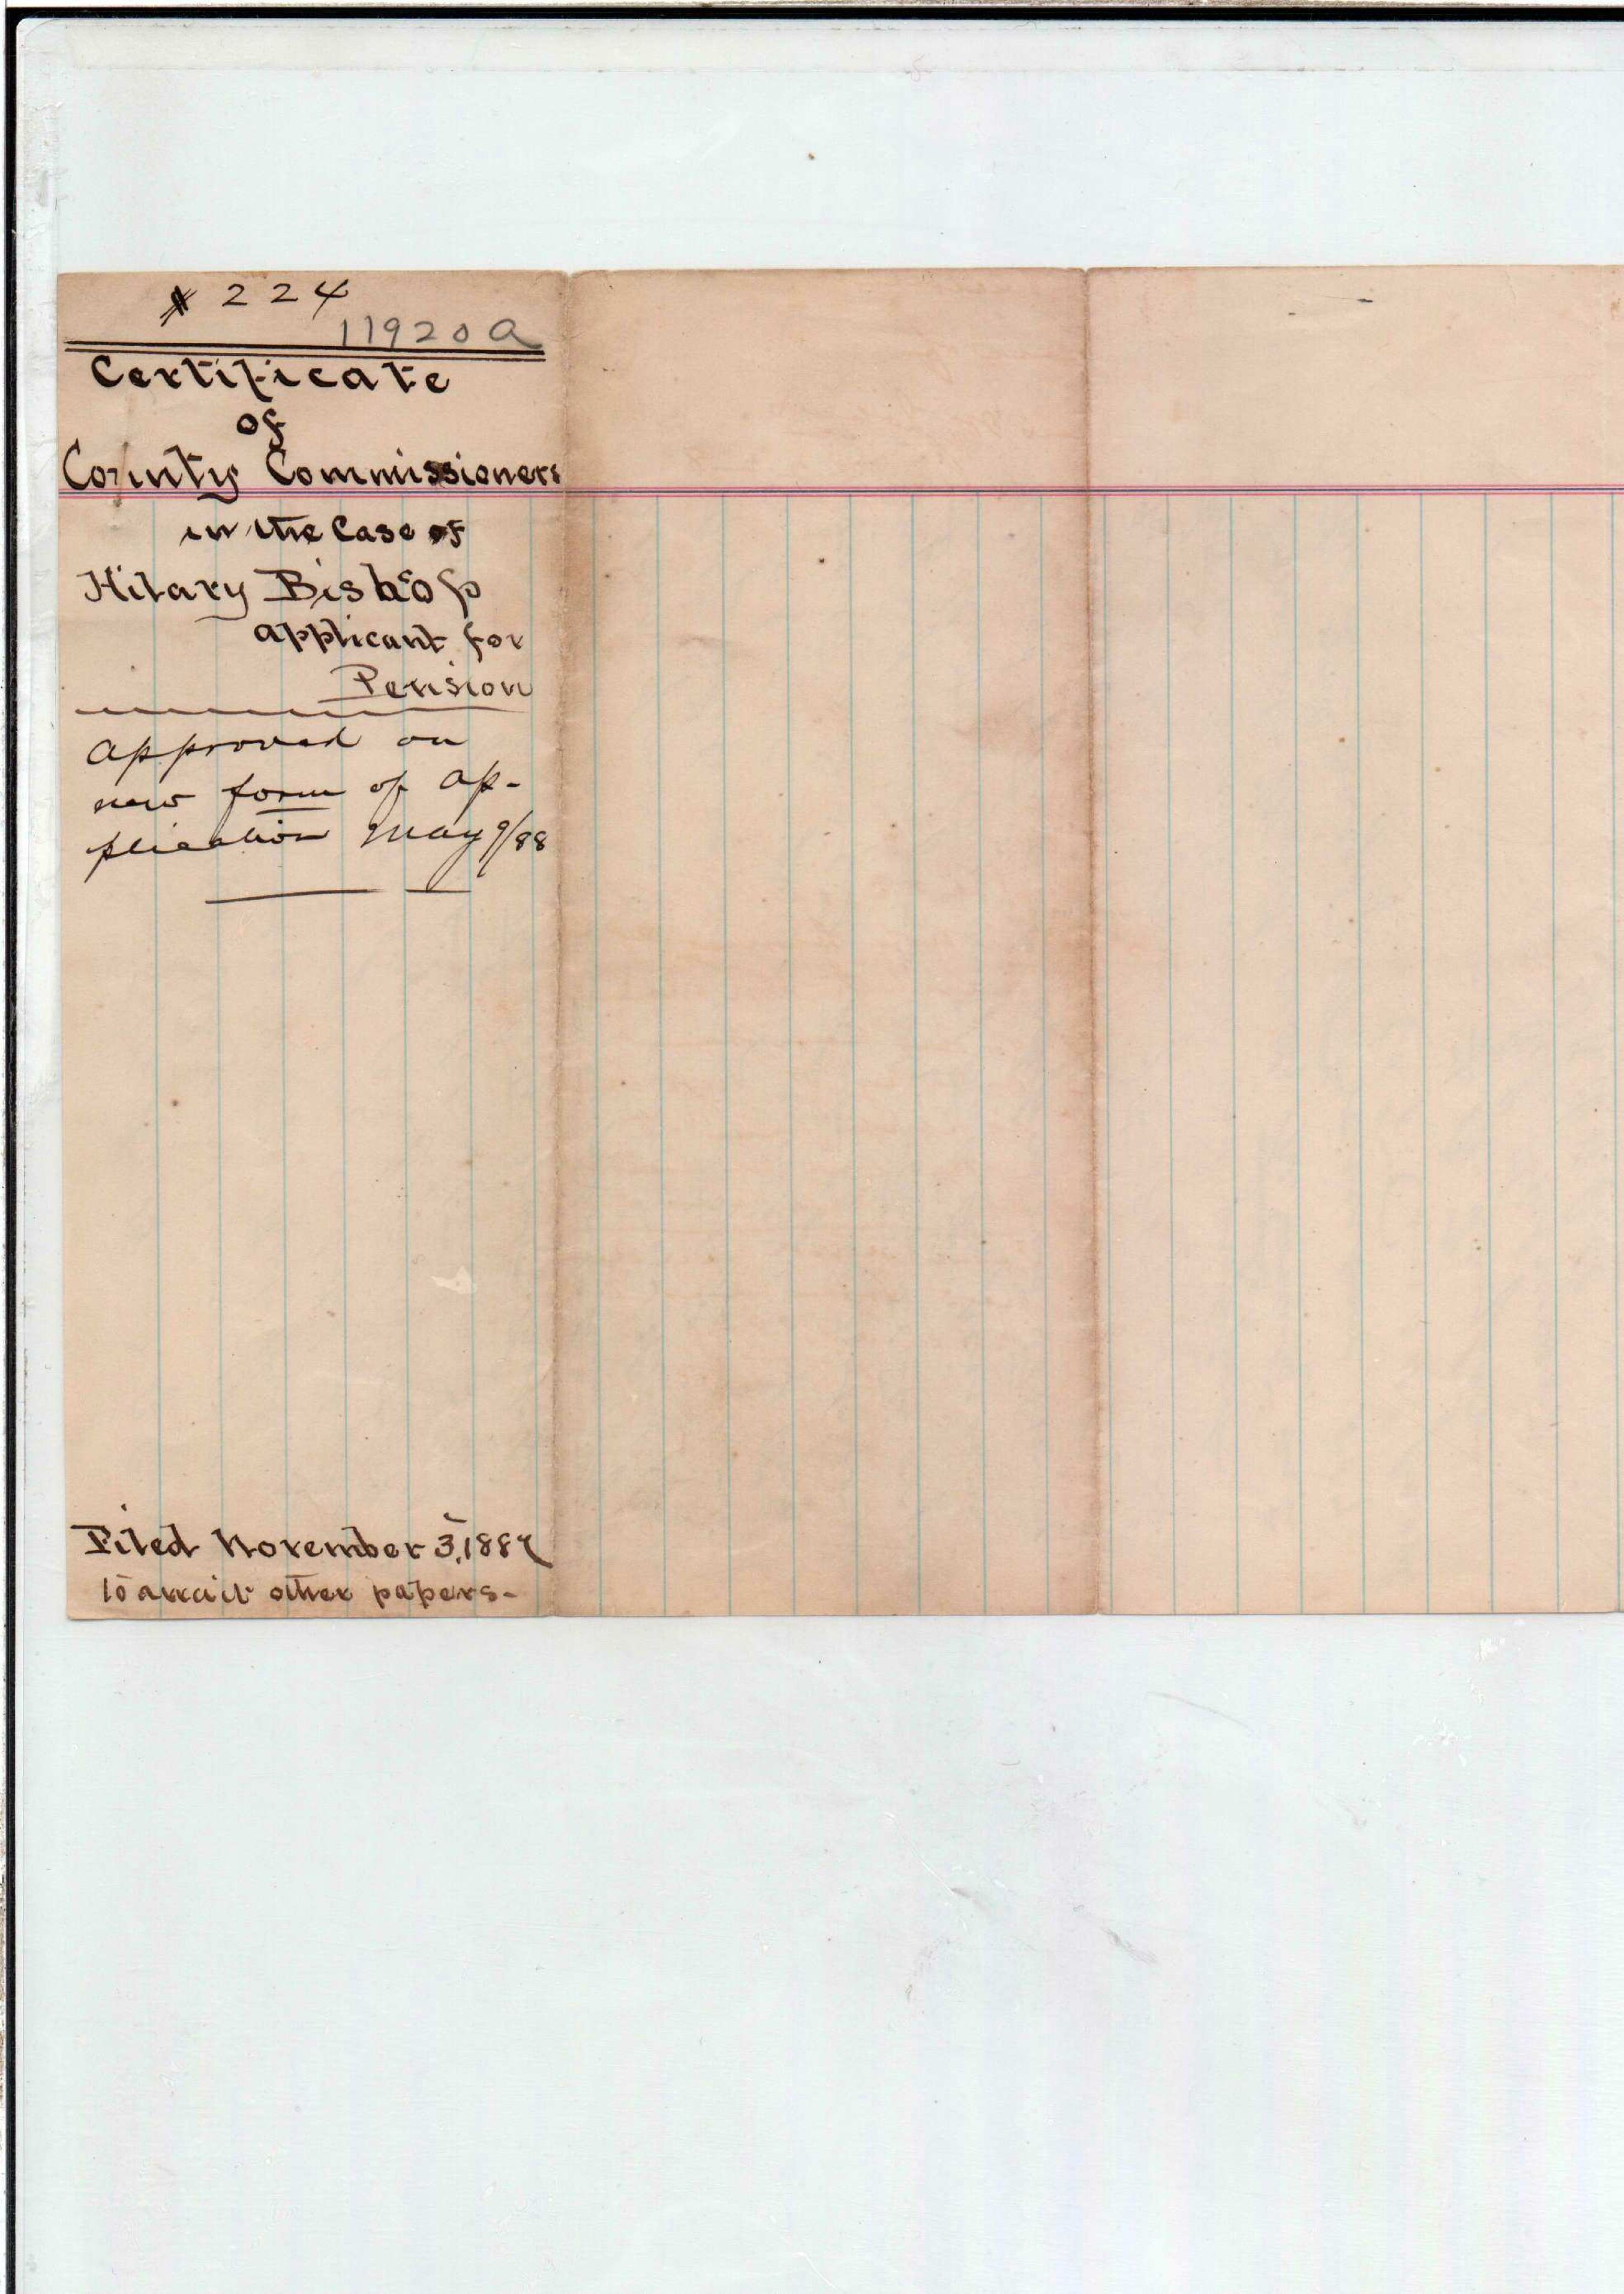 # 224
11920 a
Certificate
of
County Commissioners
in the Case of
Hilary Bishop
applicant for
Pension
approved on
new form of ap-
plication May 9/88
Filed November 3, 1887
to await other papers-